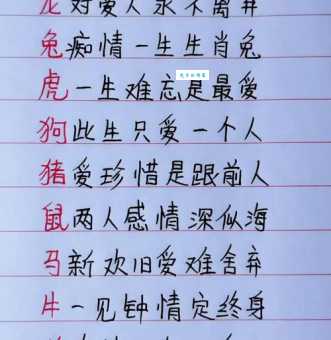 龙对爱人永不离弃
兔痴情一生生肖兔
虎一生难忘是最爱
狗此生只爱一个人
猪爱珍惜是跟前人
鼠两人感情深似海
马新欢旧爱难舍弃
牛一见钟情定终身